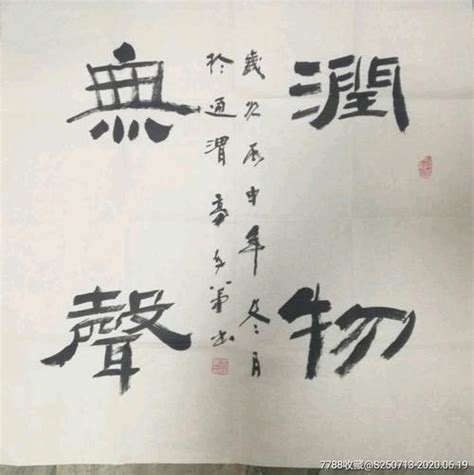 潤物
歲次丙申年冬月
於通渭書
無聲
7788收藏@S250713-2020.06.19